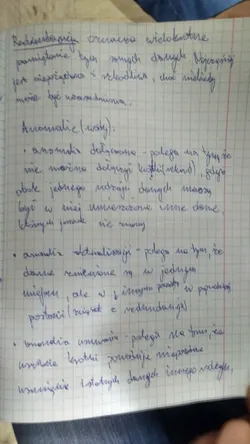 Redundancja oznacza wielokrotne
pamiętanie tych samych danych. Najczęściej
jest niepożądana i szkodliwa, choć niekiedy
może być uzasadniona.
Anomalie (wady):
• anomalia dołączania - polega na tym, że
nie można dołączyć krotki (rekord), gdyż
obok jednego rodzaju danych muszą
być w niej umieszczone inne dane,
których jeszcze nie znamy
• anomalia aktualizacji - polega na tym, że
dane zmienione są w jednym
miejscu, ale w innym w poprzedniej
postaci (związek z redundancją)
• anomalia usuwania - polega na tym, że
usunięcie krotki powoduje
usunięcie istotnych danych innego rodzaju,